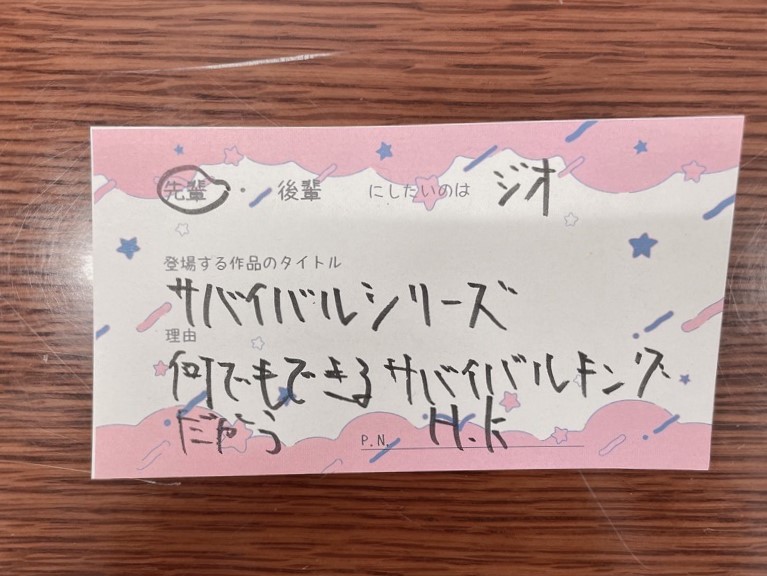 先輩・後輩 にしたいのは ジオ
登場する作品のタイトル
サバイバルシリーズ
理由
何でもできるサバイバルキング
だから
P.N. H.K